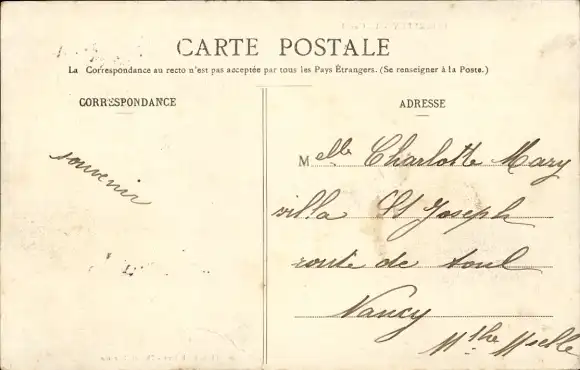 CARTE POSTALE
La Correspondance au recto n'est pas acceptée par tous les Pays Étrangers. (Se renseigner à la Poste.)
CORRESPONDANCE
ADRESSE
souvenir
Melle Charlotte Mary
villa St Joseph
route de toul
Nancy
Mthe Mselle